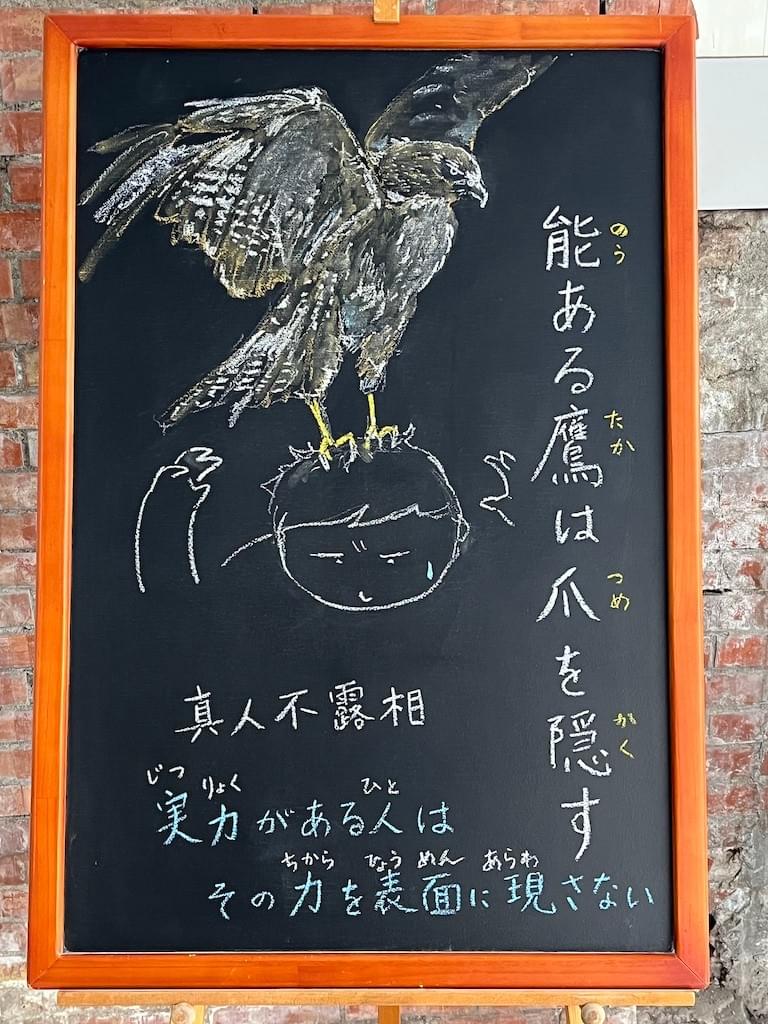 能ある鷹は爪を隠す
のう たか つめ かく
真人不露相
じつ りょく ひと
実力がある人は
ちから ひょう めん あらわ
その力を表面に現さない